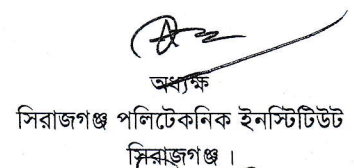 অধ্যক্ষ
সিরাজগঞ্জ পলিটেকনিক ইনস্টিটিউট
সিরাজগঞ্জ ।